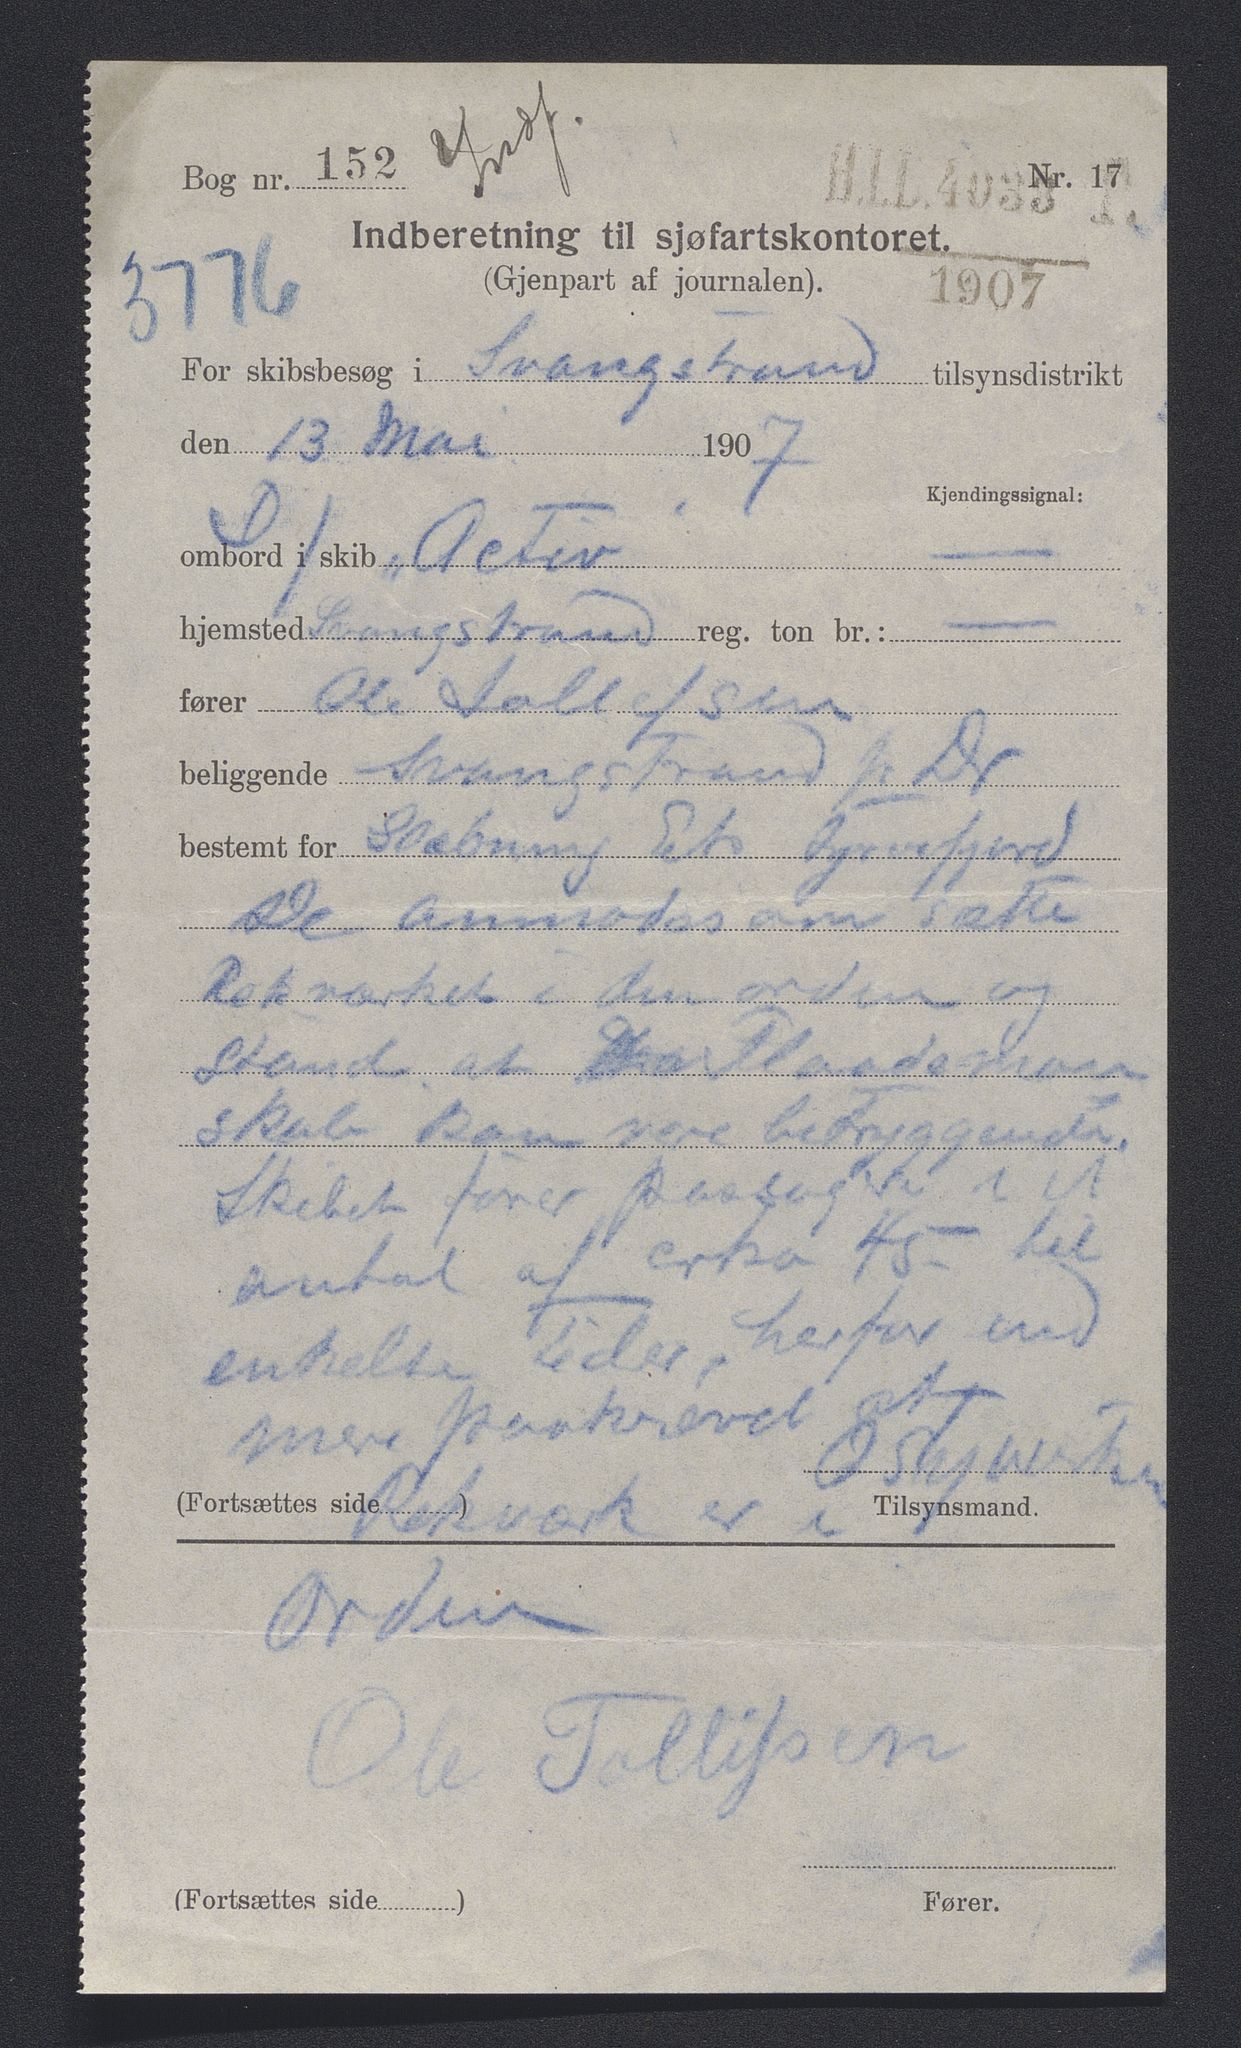 Bog nr. 152
Nr. 17
H.I.D. 4033 T.
1907
Indberetning til sjøfartskontoret.
(Gjenpart af journalen).
3776
For skibsbesøg i Svangstrand tilsynsdistrikt
den 13 Mai 1907
Kjendingssignal:
D/ ombord i skib „Activ" —
hjemsted Svangstrand reg. ton br.: —
fører Ole Tollefsen
beliggende Svangstrand pr Dr
bestemt for Slæbning Ets Tyrifjord
De anmodes om sætte
Rekværket i den orden og
stand at Flaademan
skab kan være betryggende.
Skibet fører passagere i et
antal af cirka 45 til
enkelte tider, herfor end
mere paakrævd at
Rekværk er i
(Fortsættes side )
Tilsynsmand.
Orden
Ole Tollifsen
(Fortsættes side )
Fører.